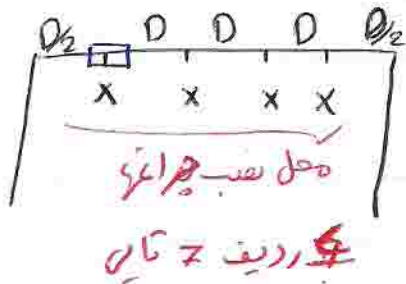 D/2 D D D D/2
x x x x
محل نصب چراغها
4 ردیف 7 تایی